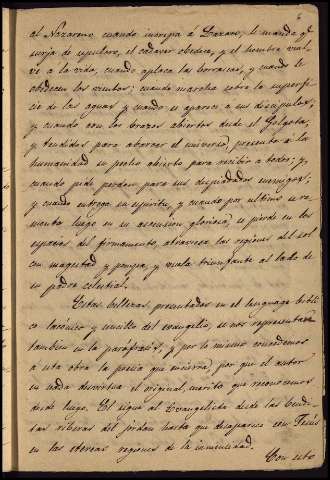 6
al Nazareno cuando increpa á Lazaro, le manda qe
surja del sepulcro, el cadaver obedece, y el hombre vuel-
ve a la vida, cuando aplaca las borrascas, y cuando le
obedecen los vientos; cuando marcha sobre la superfi-
cie de las aguas y cuando se aparece a sus discipulos;
y cuando con los brazos abiertos desde el Golgota;
y tendidos para abarcar el universo, presenta á la
humanidad su pecho abierto para recibir a todos; y
cuando pide perdon para sus despiadados enemigos;
y cuando entrega su espiritu, y cuando por ultimo se re-
monta luego en su ascension gloriosa, se pierde en los
espacios del firmamento, atraviesa las regiones del sol
con magestad y pompa, y vuela triunfante al lado de
su padre celestial.
Estas bellezas, presentadas en el lenguage bibli-
co lacónico y sencillo del evangelio, se nos representan
tambien en la paráfrasis, y por lo mismo concedemos
a esta obra la poesia que muestra, por que el autor
en nada desvirtua el original, merito que reconocemos
desde luego. El sigue al Evangelista desde las bendi-
tas riberas del jordan hasta que desaparece con Jesús
en las etereas regiones de la inmensidad.
Con esto